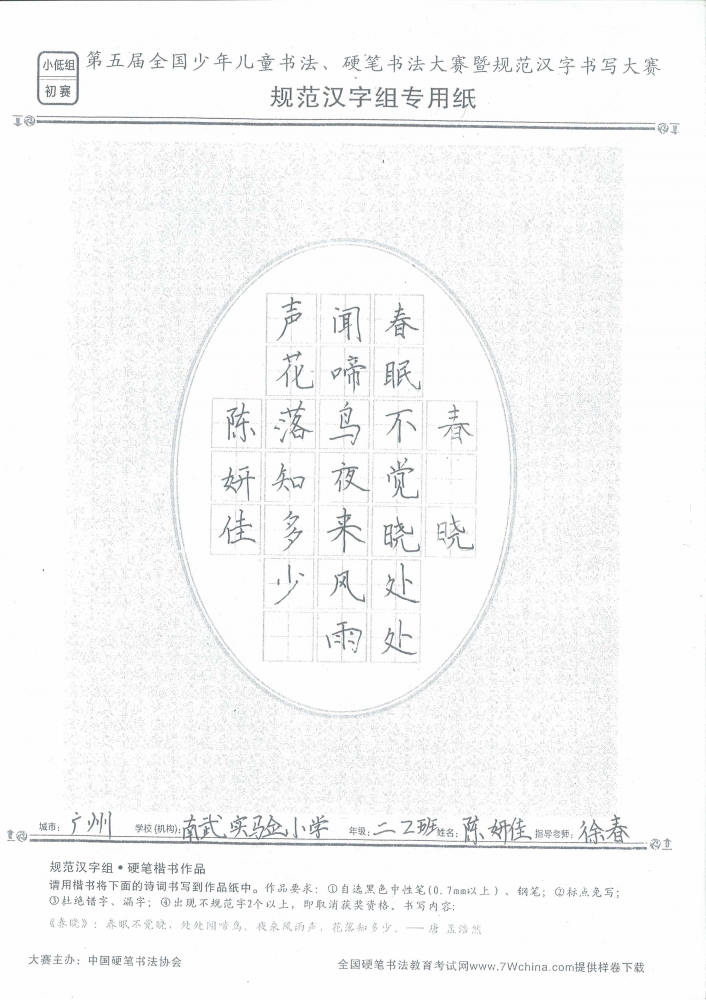 小低组
初赛
第五届全国少年儿童书法、硬笔书法大赛暨规范汉字书写大赛
规范汉字组专用纸
春晓
春眠不觉晓处处
闻啼鸟夜来风雨
声花落知多少
陈妍佳
城市：广州 学校(机构)：南武实验小学 年级：二2班 姓名：陈妍佳 指导老师：徐春
规范汉字组•硬笔楷书作品
请用楷书将下面的诗词书写到作品纸中。作品要求：①自选黑色中性笔(0.7mm以上)、钢笔；②标点免写；
③杜绝错字、漏字；④出现不规范字2个以上，即取消获奖资格。书写内容：
《春晓》：春眠不觉晓，处处闻啼鸟。夜来风雨声，花落知多少。——唐 孟浩然
大赛主办：中国硬笔书法协会
全国硬笔书法教育考试网www.7Wchina.com提供样卷下载